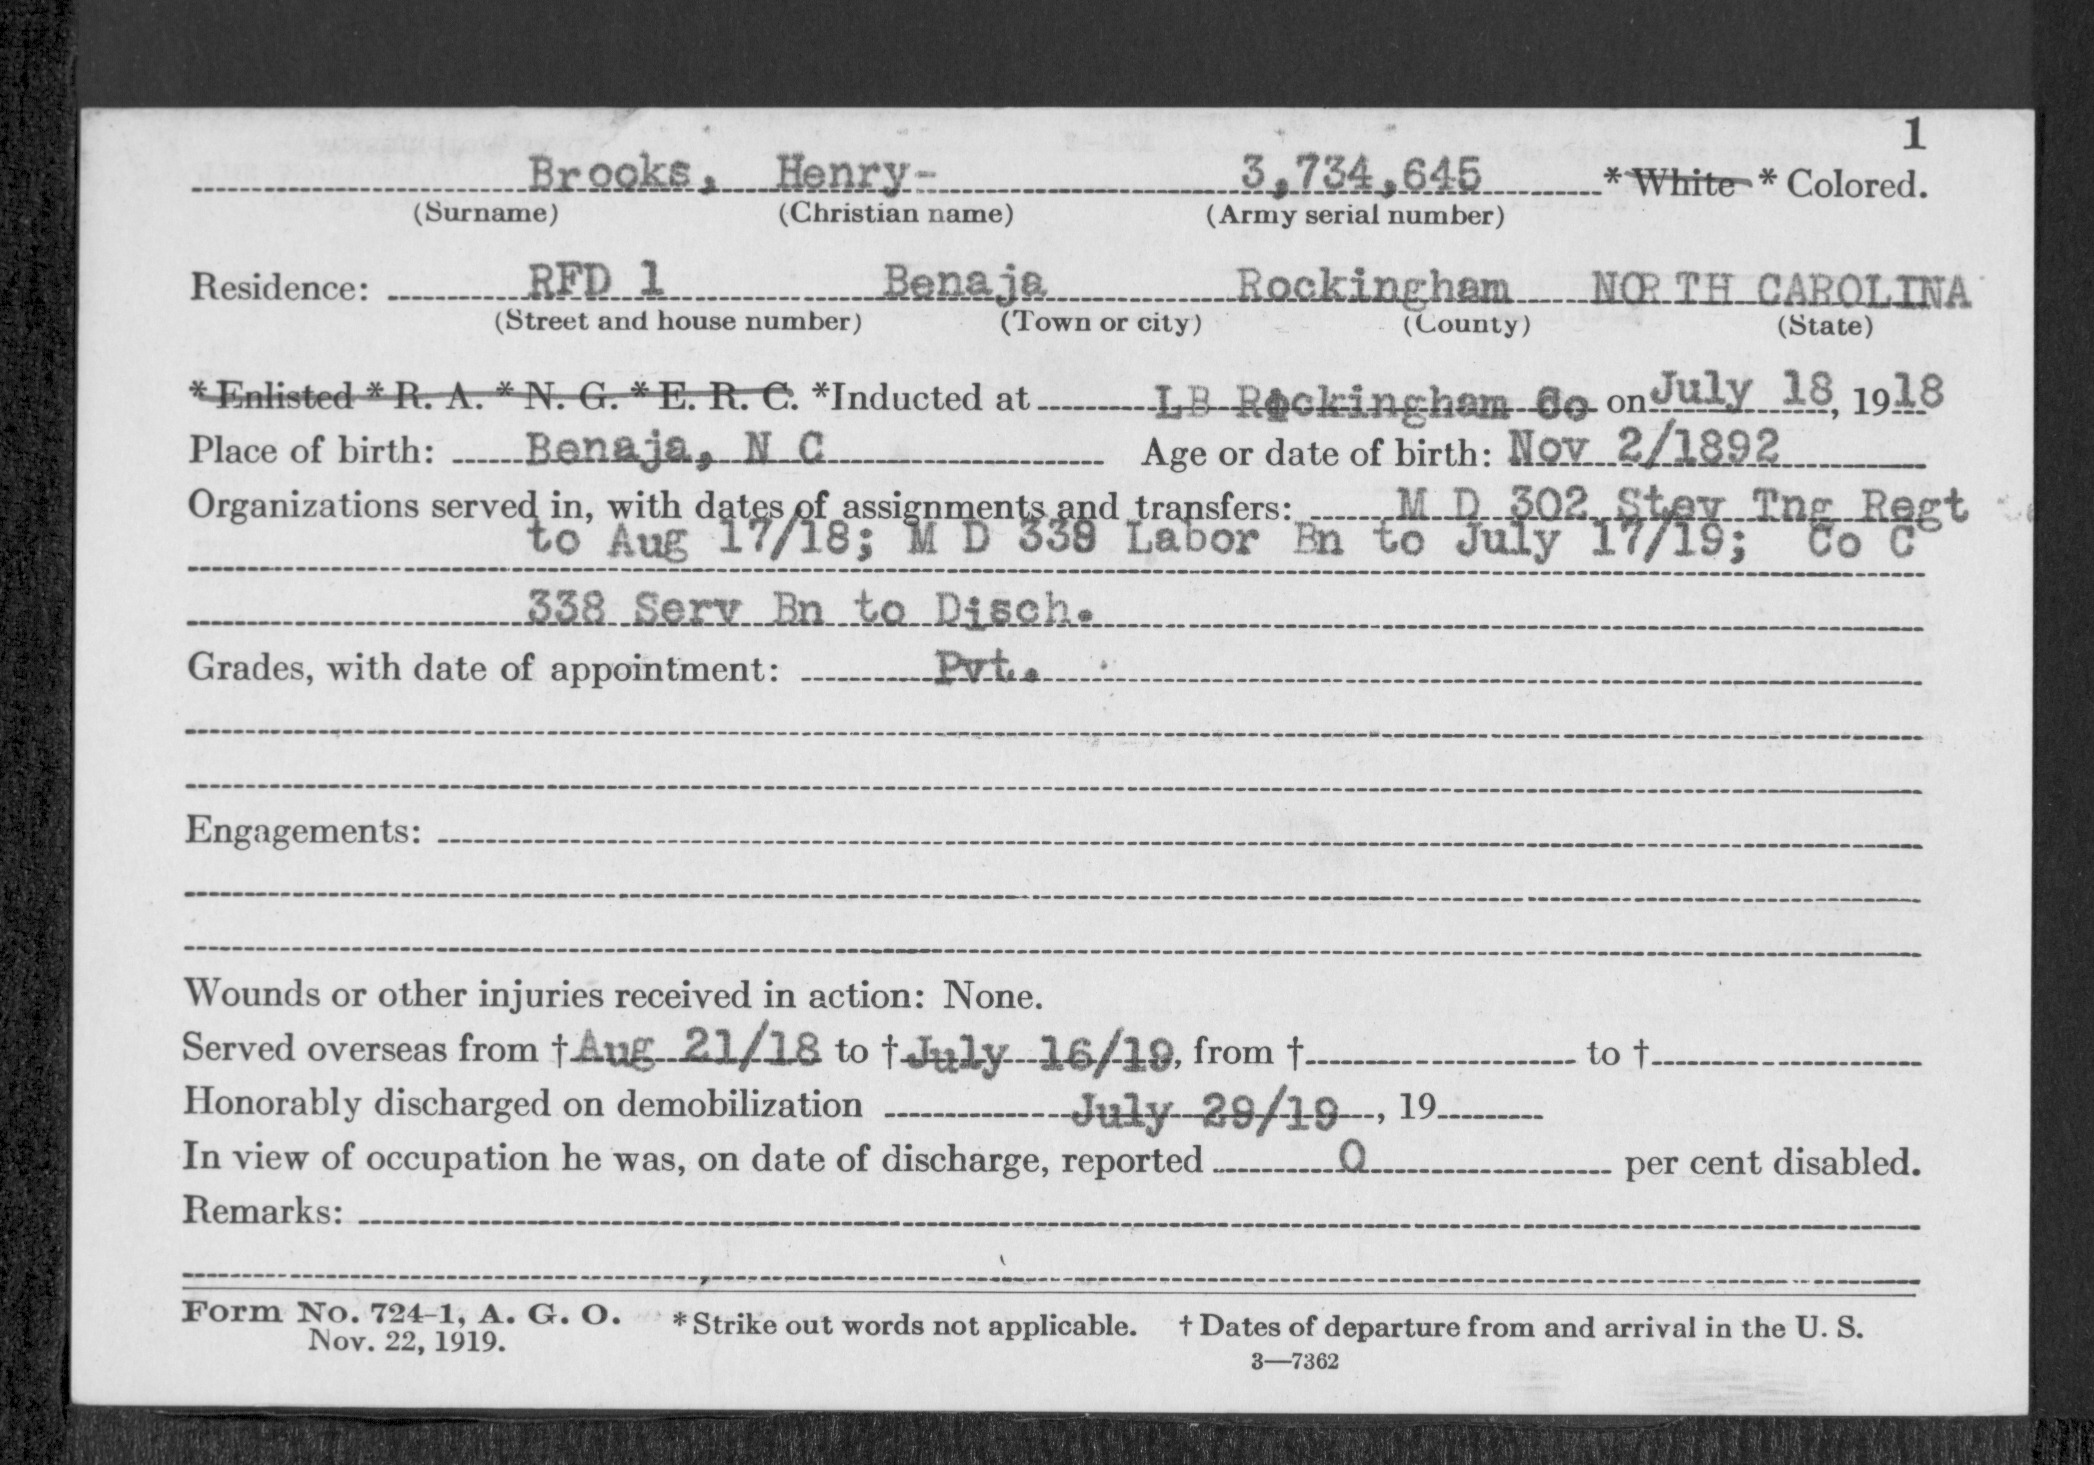 1
Brooks, Henry- 3,734,645 *White *Colored.
(Surname) (Christian name) (Army serial number)
Residence: RFD 1 Benaja Rockingham NORTH CAROLINA
(Street and house number) (Town or city) (County) (State)
*Enlisted *R. A. *N. G. *E. R. C. *Inducted at LB Rockingham Co on July 18, 1918
Place of birth: Benaja, N C Age or date of birth: Nov 2/1892
Organizations served in, with dates of assignments and transfers: M D 302 Stev Tng Regt
to Aug 17/18; M D 339 Labor Bn to July 17/19; Co C
338 Serv Bn to Disch.
Grades, with date of appointment: Pvt.
Engagements:
Wounds or other injuries received in action: None.
Served overseas from †Aug 21/18 to †July 16/19, from † to †
Honorably discharged on demobilization July 29/19, 19
In view of occupation he was, on date of discharge, reported 0 per cent disabled.
Remarks:
Form No. 724-1, A. G. O. *Strike out words not applicable. †Dates of departure from and arrival in the U. S.
Nov. 22, 1919.
3—7362